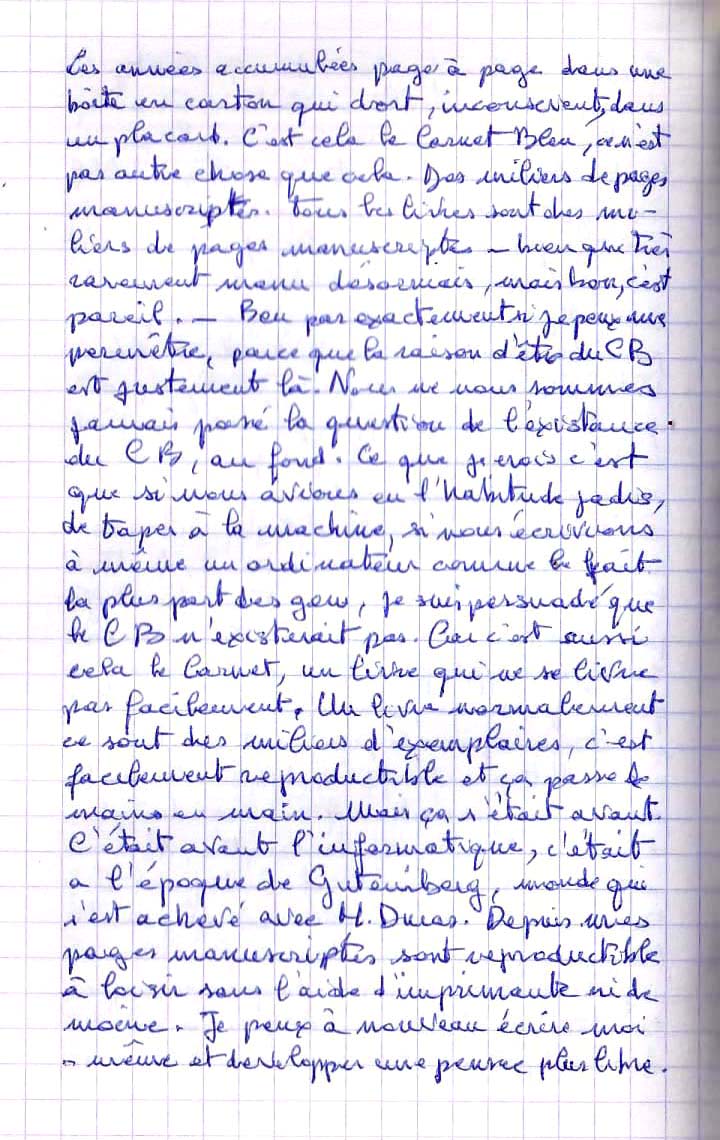 Les années accumulées page à page dans une
boîte en carton qui dort, inconscient, dans
un placard. C'est cela le Carnet Bleu, ce n'est
pas autre chose que cela. Des miliers de pages
manuscriptes. Tous les livres sont des mi-
liers de pages manuscriptes – bien que très
rarement manu désormais, mais bon, c'est
pareil. – Ben pas exactement si je peux me
permettre, parce que la raison d'être du CB
est justement là. Nous ne nous sommes
jamais posé la question de l'existance
du CB, au fond. Ce que je crois c'est
que si nous avions eu l'habitude jadis,
de taper à la machine, si nous écrivions
à même un ordinateur comme le fait
la plus part des gens, je suis persuadé que
le CB n'existerait pas. Car c'est aussi
cela le Carnet, un livre qui ne se livre
pas facilement. Un livre normalement
ce sont des miliers d'exemplaires, c'est
facilement reproductible et ça passe de
mains en main. Mais ça c'était avant.
C'était avant l'informatique, c'était
a l'époque de Gutemberg, monde qui
s'est achevé avec M. Ducas. Depuis mes
pages manuscriptes sont reproductible
à loisir sans l'aide d'imprimante ni de
moine. Je peux à nouveau écrire moi
- même et developper une pensée plus libre.